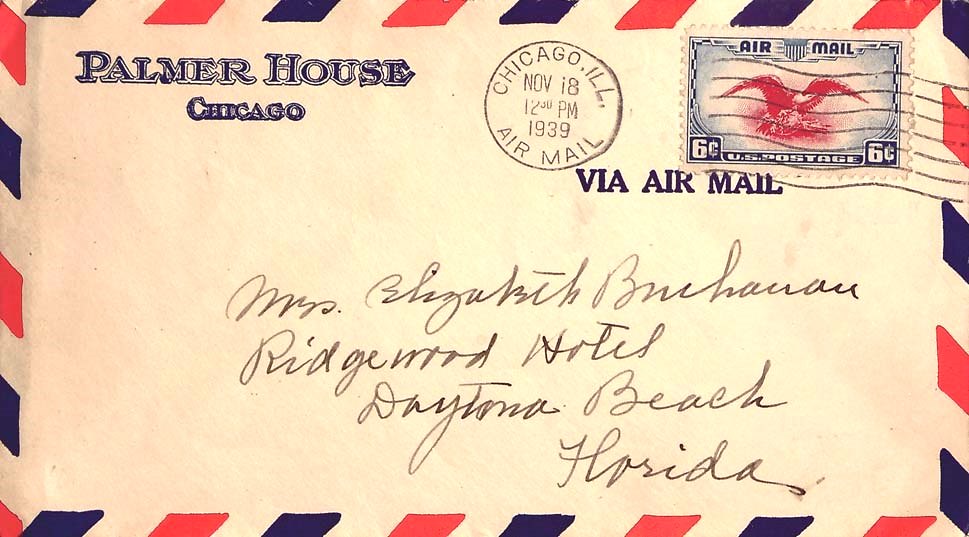 PALMER HOUSE
CHICAGO
CHICAGO, ILL.
NOV 18
12³⁰ PM
1939
AIR MAIL
AIR MAIL
6¢ U.S. POSTAGE 6¢
VIA AIR MAIL
Mrs. Elizabeth Buchanan
Ridgewood Hotel
Daytona Beach
Florida